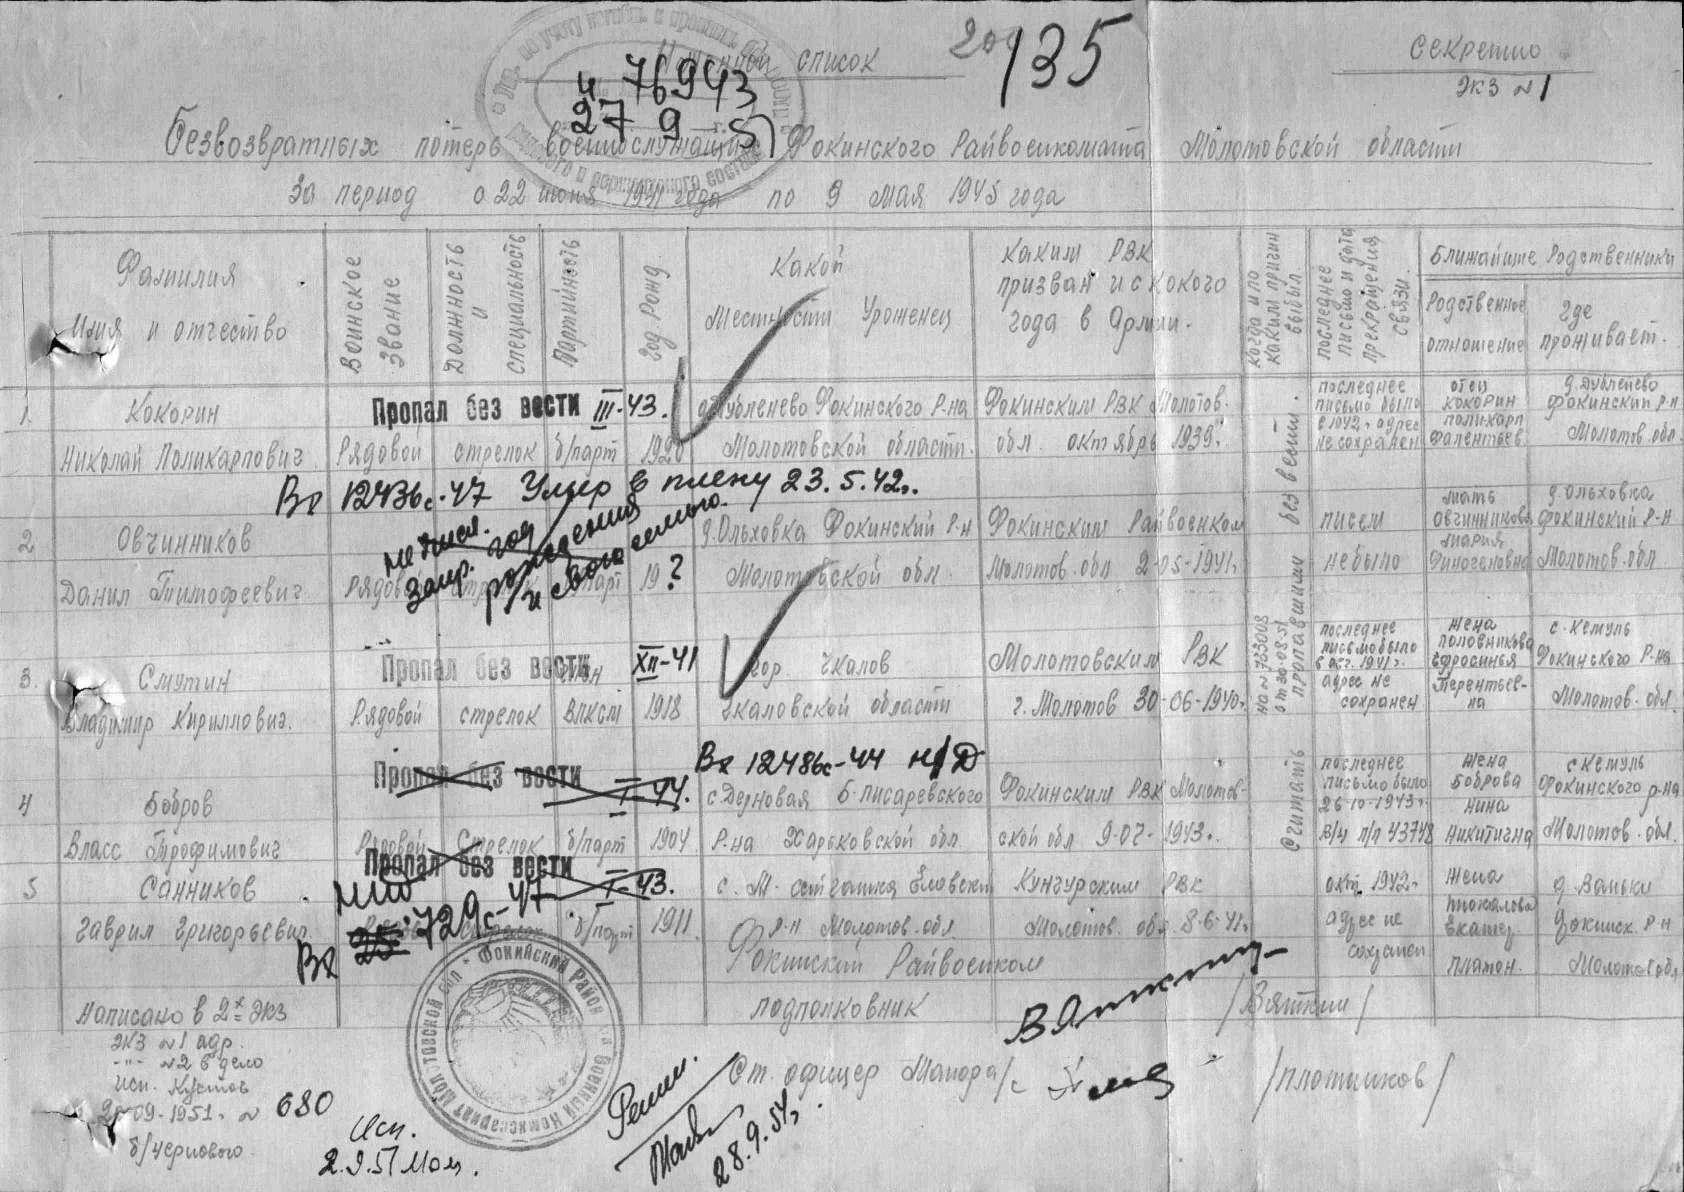 Именной список
135
Секретно
Экз №1
и 76943
27 9 51
Безвозвратных потерь военнослужащих Фокинского Райвоенкомата Молотовской области
За период с 22 июня 1941 года по 9 мая 1945 года
Фамилия
Имя и отчество
Воинское звание
Должность и специальность
Партийность
Год рожд.
Какой местности уроженец
Каким РВК призван и с какого года в Армии.
Когда и по какой причин выбыл
Последнее письмо и дата прекращения связи.
Ближайшие Родственники
Родственное отношение
Где проживает.
1. Кокорин
Николай Поликарпович
Пропал без вести III-43.
Рядовой стрелок б/парт 1920
д. Дубленево Фокинского Р-на
Молотовской области.
Фокинским РВК Молотов.
обл. октябрь 1939г.
последнее
письмо было
в 1942г. адрес
не сохранен
отец
Кокорин
Поликарп
д. Дубленево
Фокинский Р-н
Молотов. обл.
Вх 12436с-47 Умер в плену 23.5.42г.
2 Овчинников
Данил Тимофеевич
не числ.
запр. год
рождения
и связь с семьею.
Рядовой стрелок б/парт 19 ?
д. Ольховка Фокинский Р-н
Молотовской обл.
Фокинским Райвоенком
Молотов. обл 2-05-1941г.
писем
не было
мать
Овчинникова
Мария
д. Ольховка
Фокинский Р-Н
Молотов. обл
3. Смутин
Владимир Кириллович.
Пропал без вести XII-41
Рядовой стрелок ВЛКСМ 1918
гор. Чкалов
Чкаловской области
Молотовским РВК
г. Молотов 30-06-1940г.
последнее
письмо было
в окт. 1941г.
адрес не
сохранен
жена
Половникова
Ефросинья
Терентьев-
на
с. Кемуль
Фокинского Р-на
Молотов. обл.
Считать пропавшими без вести.
на №723008
от 30-08-51
4 Бобров
Власс Трофимович
Пропал без вести
I-44.
Рядовой Стрелок б/парт 1904
Вх 12486с-44 н/Д
с. Дерновая Б-Писаревского
Р-на Харьковской обл
Фокинским РВК Молотов-
ской обл 9-07-1943г.
последнее
письмо было
26-10-1943г.
в/ч п/п 43748
жена
Боброва
Нина
Никитична
с Кемуль
Фокинского р-на
Молотов. обл.
5 Санников
Гаврил Григорьевич.
Пропал без вести
I-43.
Вх 729с-47
б/парт 1911
Р-н Молотов. обл
Кунгурским РВК
Молотов. обл 8-6-41г.
окт. 1942г.
адрес не
сохранен
жена
Екатер.
Платон.
д. Ваньки
Фокинск. Р-н
Молотов обл
Фокинский Райвоенком
подполковник
/Вяткин/
Ст. офицер Майор а/с
/Плотников/
Написано в 2х экз
экз №1 адр.
-"- №2 в дело
исп. Кустов
09-1951г. № 680
б/черновового.
Исп.
28.9.51г.
Фокинский Район
Военный Комиссариат